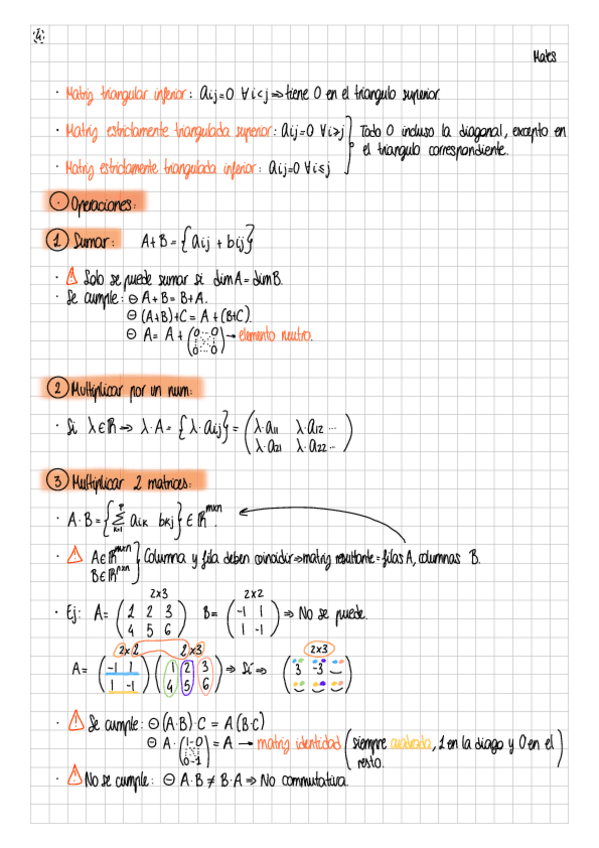 4
Mates
· Matriz triangular inferior: aij=0 ∀i<j ⇒ tiene 0 en el triangulo superior.
· Matriz estrictamente triangulada superior: aij=0 ∀i≥j } Todo 0 incluso la diagonal, excepto en el triangulo correspondiente.
· Matriz estrictamente triangulada inferior: aij=0 ∀i≤j
· Operaciones:
1 Sumar: A+B = {aij + bij}
· ⚠ Solo se puede sumar si dim A = dim B.
· Se cumple: ⊖ A+B = B+A.
⊖ (A+B)+C = A+(B+C).
⊖ A = A + (0...0 / 0...0) → elemento neutro.
2 Multiplicar por un num:
· Si λ∈ℝ ⇒ λ·A = {λ·aij} = (λ·a11 λ·a12 ... / λ·a21 λ·a22 ...)
3 Multiplicar 2 matrices:
· A·B = {Σ k=1 aik bkj} ∈ ℝ^mxn.
· ⚠ A∈ℝ^mxn
B∈ℝ^nxn } Columna y fila deben coincidir ⇒ matriz resultante = filas A, columnas B.
2x3 2x2
· Ej: A = (1 2 3 / 4 5 6) B = (-1 1 / 1 -1) ⇒ No se puede.
2x2 2x3 2x3
A = (-1 1 / 1 -1) (1 2 3 / 4 5 6) ⇒ Sí ⇒ (3 -3 _ / _ _ _)
· ⚠ Se cumple: ⊖ (A·B)·C = A(B·C)
⊖ A·(1-0 / 0-1) = A → matriz identidad (siempre cuadrada, 1 en la diago y 0 en el resto.)
· ⚠ No se cumple: ⊖ A·B ≠ B·A ⇒ No commutativa.